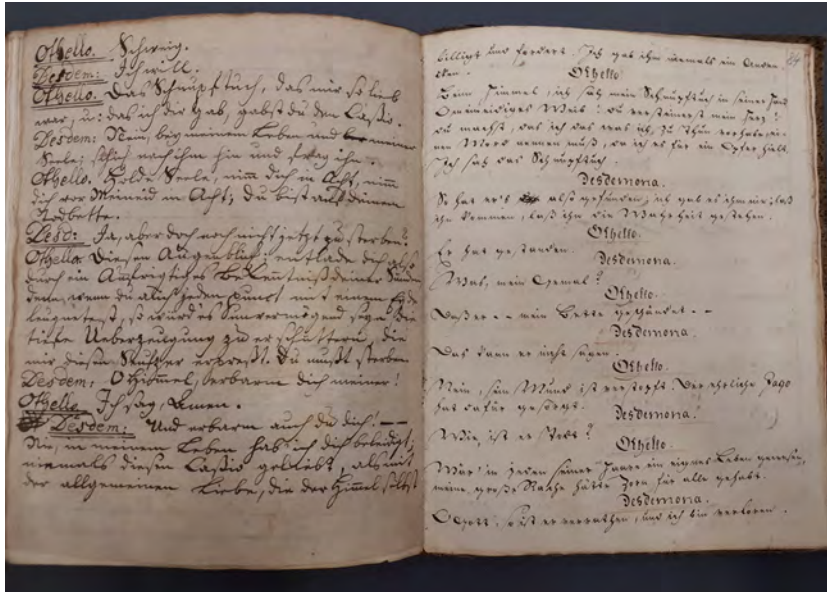 Othello. Schweig.
Desdem: Ich will.
Othello. Das Schnupftuch, das mir so lieb
war, u: das ich dir gab, gabst du dem Cassio.
Desdem: Nein, bey meinem Leben und meiner
Seele; schick nach ihm hin und frag ihn.
Othello. Holde Seele, nim dich in Acht, nim
dich vor Meineid in Acht; du bist auf deinem
Todbette.
Desd: Ja, aber doch noch nicht jetzt zu sterben?
Othello: Diesen Augenblick; entlade dich also
durch ein Aufrigtiges Bekentniß deiner Sünden
denn, wenn du auch jeden punct mit einem Eyde
leugnetest, so würd es unvermögend seyn die
tiefe Ueberzeugung zu erschüttern, die
mir diesen Seufzer erpreßt. Du mußt sterben
Desdem: O Himmel, erbarm dich meiner!
Othello Ich sag, Amen.
Desdem: Und erbarm auch du dich! —
Nie, in meinem Leben hab ich dich beleidigt;
niemals diesen Cassio geliebt, als mit
der allgemeinen Liebe, die der Himel selbst
84
billigt und fordert. Ich gab ihm niemals ein Anden
cken.
Othello
Beim Himmel, ich sah mein Schnupftuch in seiner Hand
O meineidiges Weib! du versteinerst mein Herz!
du machst, daß ich das was ich zu thun vorhabe, ei-
nen Mord nennen muß, da ich es für ein Opfer hielt.
Ich sah das Schnupftuch.
Desdemona.
So hat er's also gefunden; ich gab es ihm nie; laß
ihn kommen, laß ihn die Wahrheit gestehen.
Othello.
Er hat gestanden.
Desdemona.
Was, mein Gemal?
Othello.
Daß er - - mein Bette geschändet. -
Desdemona.
Das kann er nicht sagen.
Othello.
Nein, sein Mund ist verstopft. Der ehrliche Jago
hat dafür gesorgt.
Desdemona.
Wie, ist er Todt?
Othello.
Wär' in jedem seiner Haare ein eignes Leben gewesen,
meine große Rache hätte Zorn für alle gehabt.
Desdemona.
O Gott! so ist er verrathen, und ich bin verloren.